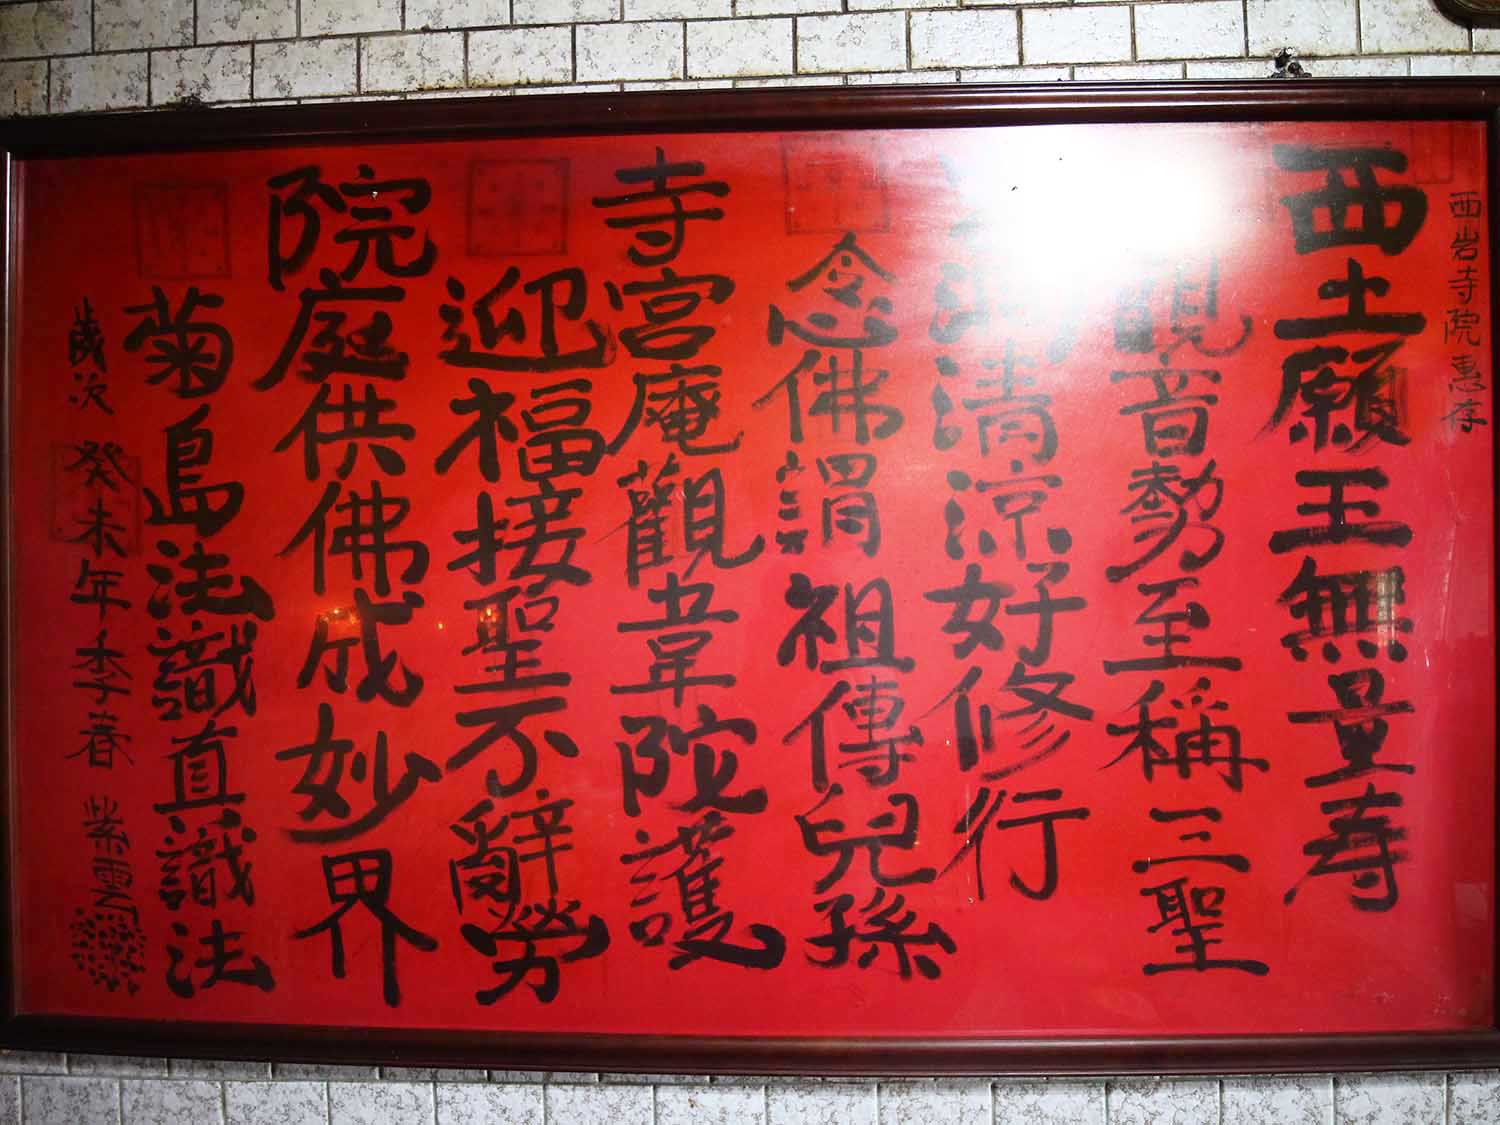 西岩寺院惠存
西土願王無量壽
觀音勢至稱三聖
清涼好修行
念佛謂祖傳兒孫
寺宮庵觀韋陀護
迎福接聖不辭勞
院庭供佛成妙界
菊島法識直識法
歲次癸未年季春紫雲